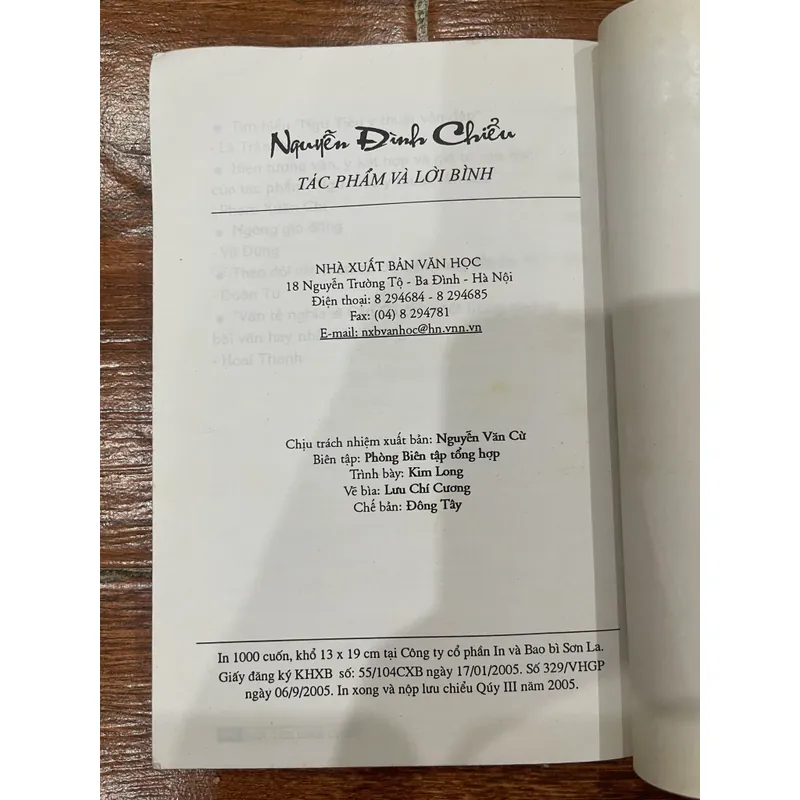 Nguyễn Đình Chiểu
TÁC PHẨM VÀ LỜI BÌNH
NHÀ XUẤT BẢN VĂN HỌC
18 Nguyễn Trường Tộ - Ba Đình - Hà Nội
Điện thoại: 8 294684 - 8 294685
Fax: (04) 8 294781
E-mail: nxbvanhoc@hn.vnn.vn
Chịu trách nhiệm xuất bản: Nguyễn Văn Cừ
Biên tập: Phòng Biên tập tổng hợp
Trình bày: Kim Long
Vẽ bìa: Lưu Chí Cương
Chế bản: Đông Tây
In 1000 cuốn, khổ 13 x 19 cm tại Công ty cổ phần In và Bao bì Sơn La.
Giấy đăng ký KHXB số: 55/104CXB ngày 17/01/2005. Số 329/VHGP
ngày 06/9/2005. In xong và nộp lưu chiểu Qúy III năm 2005.